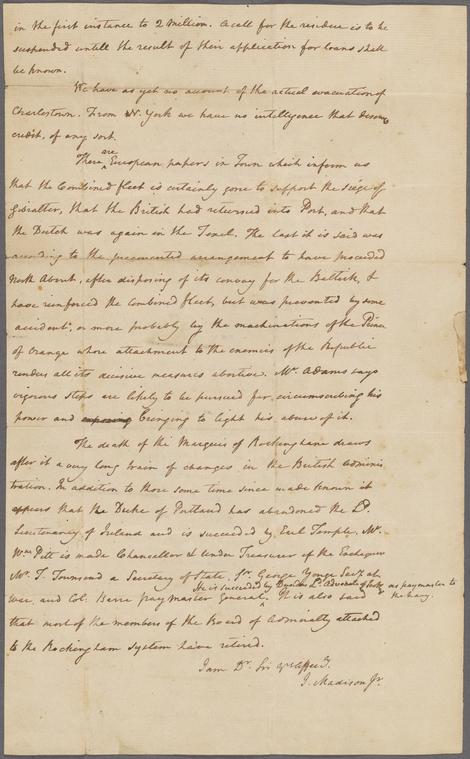 in the first instance to 2 Million. A call for the residue is to be
suspended untill the result of their application for loans shall
be known.
We have as yet no account of the actual evacuation of
Charlestown. From N. York we have no intelligence that deserves
credit, of any sort.
There are European papers in Town which inform us
that the Combined fleet is certainly gone to support the siege of
Gibralter, that the British had returned into Port, and that
the Dutch was again in the Texel. The last it is said was
according to the preconcerted arrangement to have proceeded
North About, after disposing of its convoy for the Baltick, &
have reinforced the combined fleet, but was prevented by some
accident, or more probably by the machinations of the Prince
of Orange whose attachment to the enemies of the Republic
renders all its decisive measures abortive. Mr. Adams says
vigorous steps are likely to be pursued for circumscribing his
power and bringing to light his abuse of it.
The death of the Marquis of Rockingham draws
after it a very long train of changes in the British Adminis
tration. In addition to those some time since made known it
appears that the Duke of Portland has abandoned the Ld.
Lieutenancy of Ireland and is succeeded by Earl Temple, Mr.
Wm. Pitt is made Chancellor & Under Treasurer of the Exchequer
Mr. T. Townsend a Secretary of State, Sr. George Yonge Secy. at
war, and Col: Barre pay master General. He is succeeded by Dundas Ld. Advocate of Scotld. as paymaster to the Navy. It is also said
that most of the members of the Board of Admiralty attached
to the Rockingham System have retired.
I am Dr. Sir Yrs. Affecy.
J. Madison Jr.